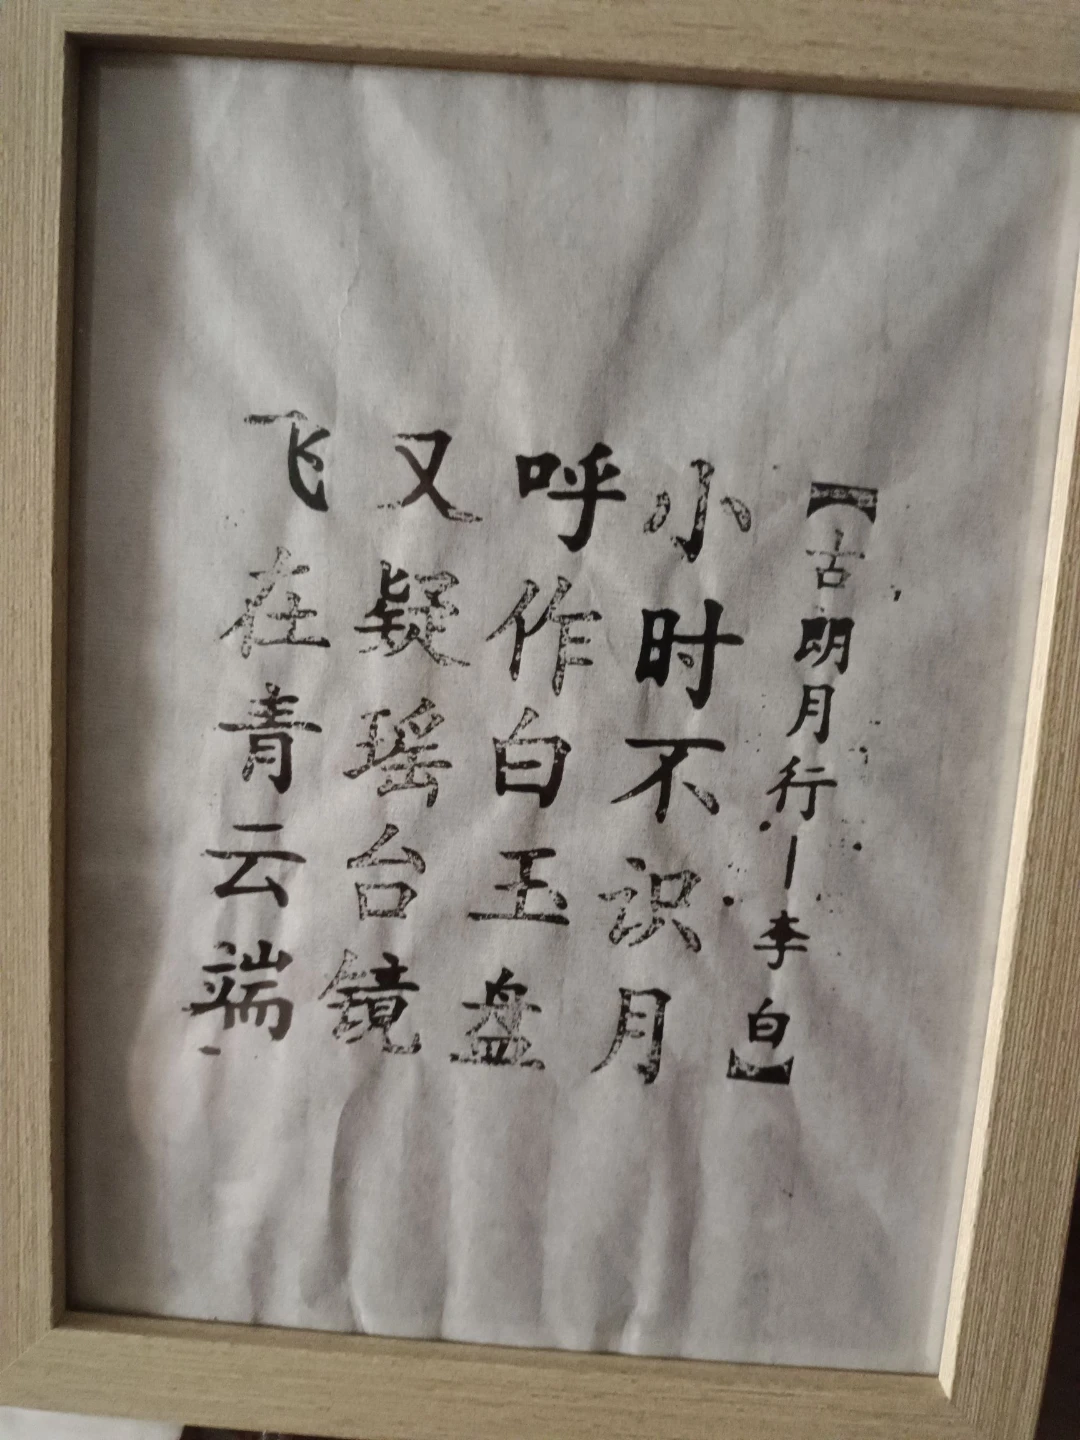 【古朗月行—李白】
小时不识月
呼作白玉盘
又疑瑶台镜
飞在青云端